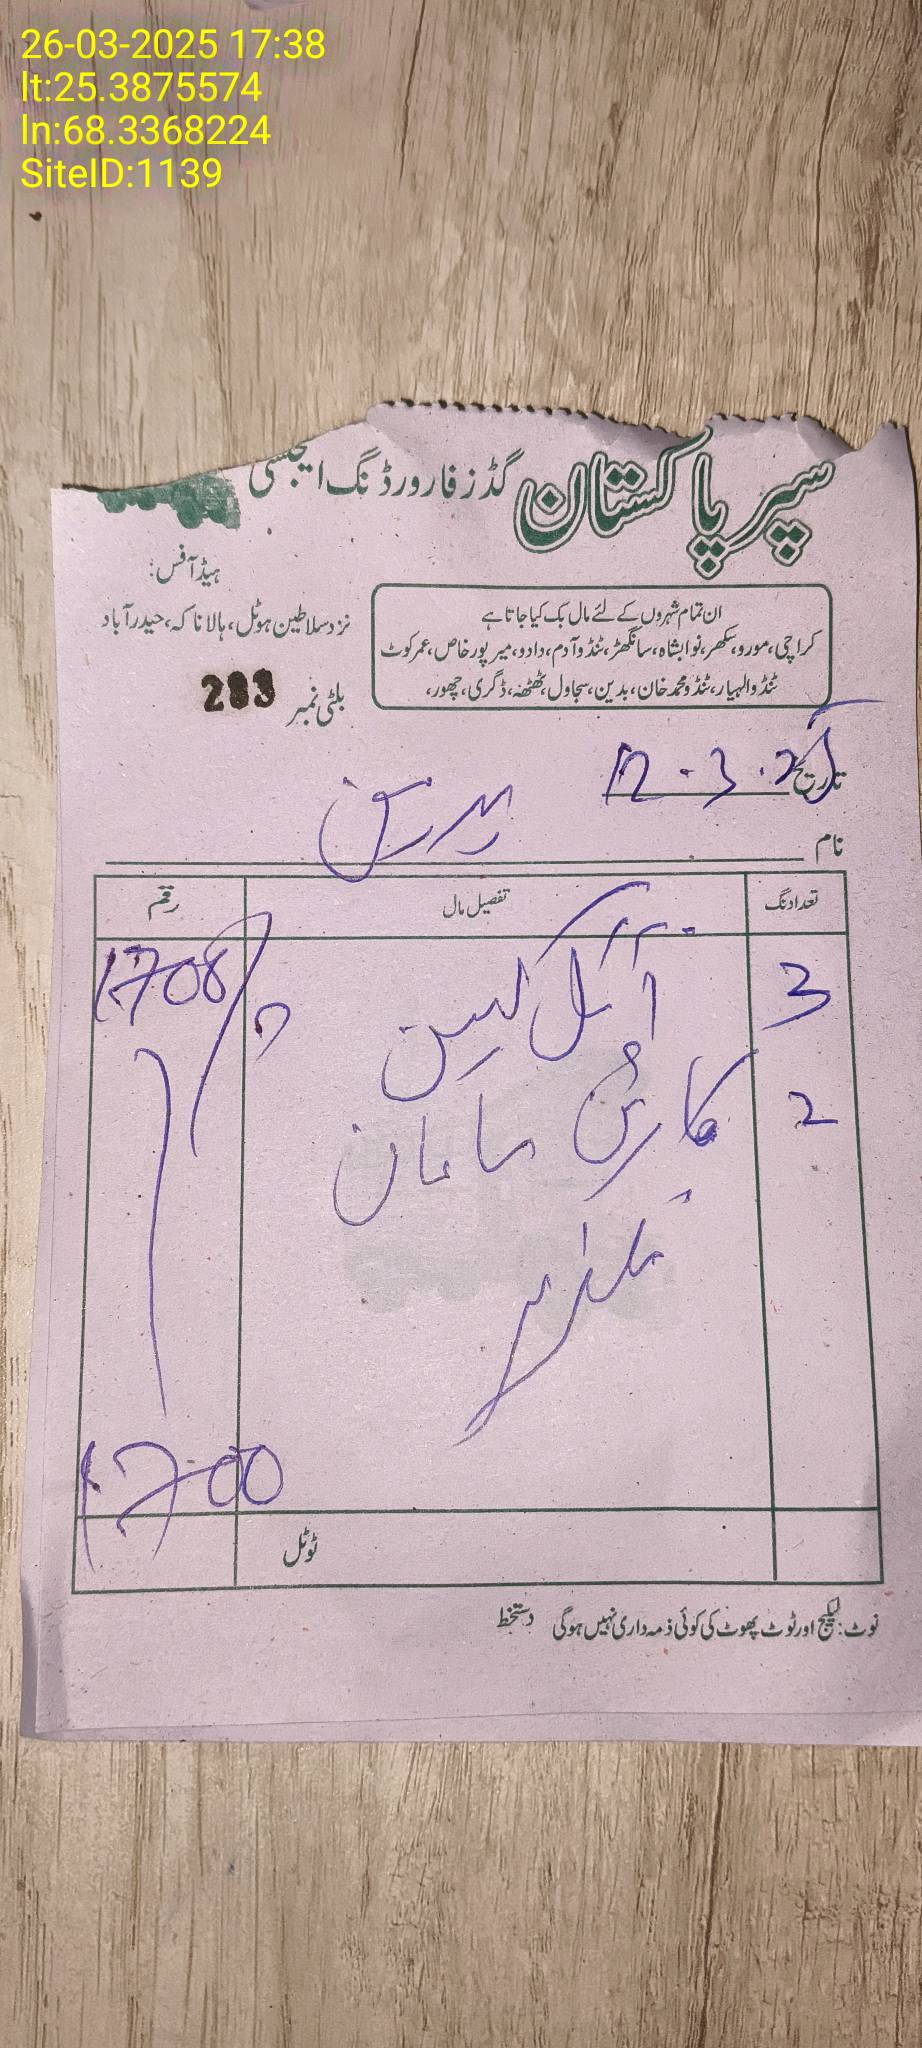 26-03-2025 17:38
lt:25.3875574
ln:68.3368224
SiteID:1139
سپر پاکستان گڈز فارورڈنگ ایجنسی
ہیڈ آفس:
نزد سلاطین ہوٹل، ہالا ناکہ، حیدرآباد
ان تمام شہروں کے لئے مال بک کیا جاتا ہے
کراچی، مورو، سکھر، نوابشاہ، سانگھڑ، ٹنڈو آدم، دادو، میرپور خاص، عمرکوٹ
ٹنڈو الہیار، ٹنڈو محمد خان، بدین، سجاول، ٹھٹھہ، ڈگری، چھور،
بلٹی نمبر 283
تاریخ 12.3.25
نام بدین
تعداد نگ تفصیل مال رقم
3 آئل کین 1700
2 کارٹن سامان
1700
ٹوٹل
نوٹ: لیکیج اور ٹوٹ پھوٹ کی کوئی ذمہ داری نہیں ہوگی دستخط